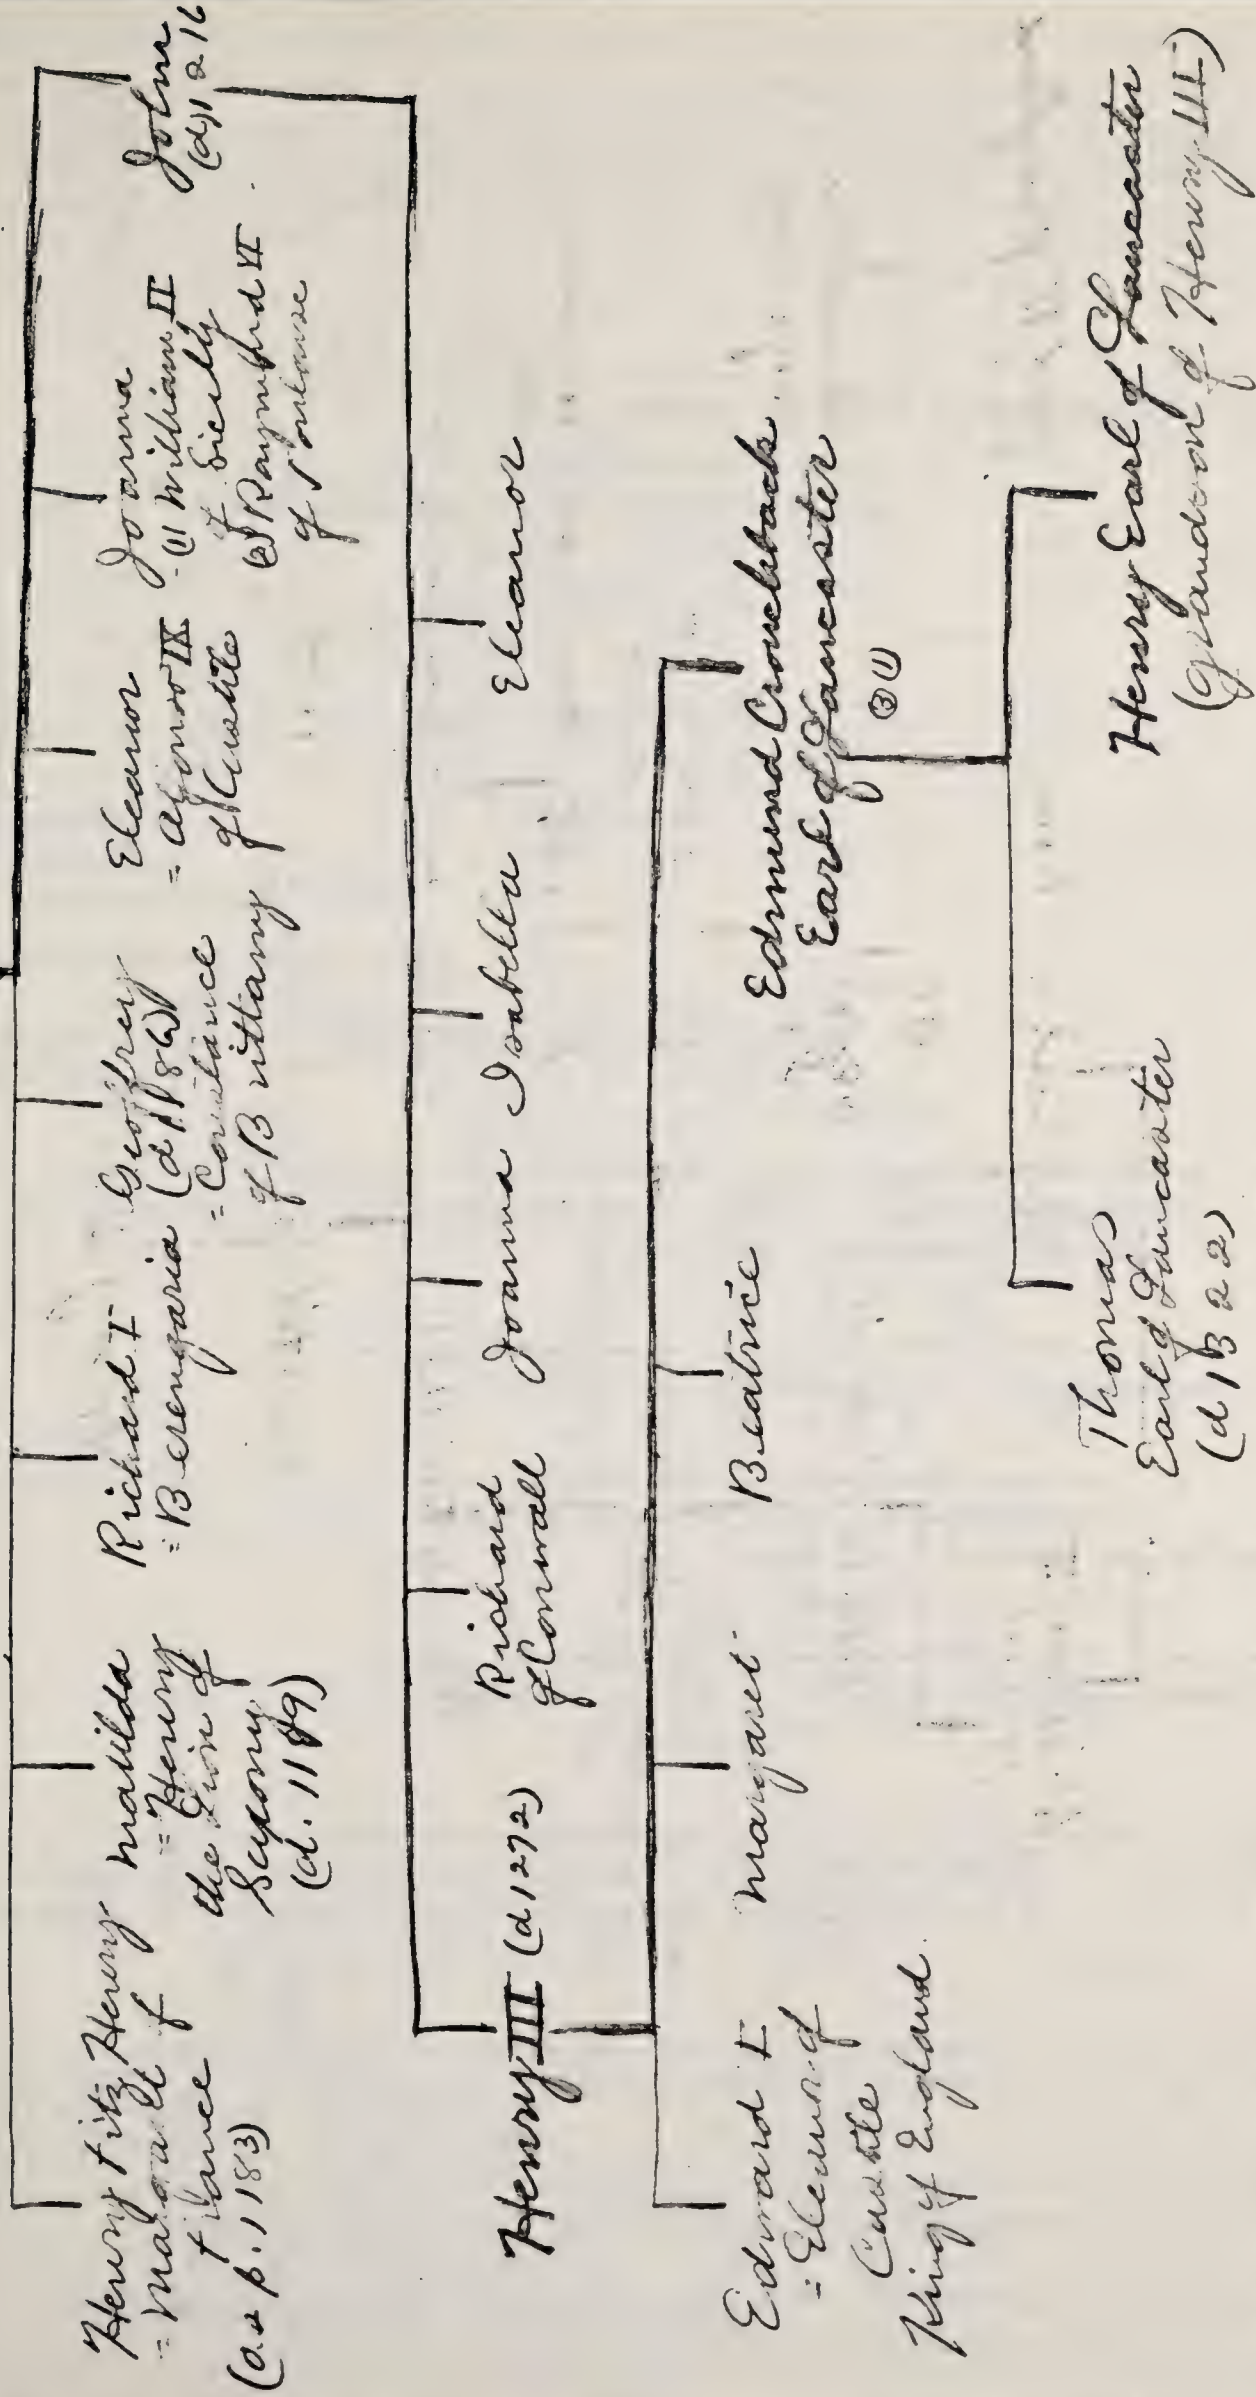 Henry Fitz Henry
= Margaret of
France
(d.s.p. 1183)
Matilda
= Henry
the Lion of
Saxony
(d. 1189)
Richard I
= Berengaria
Geoffrey
(d 1186)
= Constance
of Brittany
Eleanor
= Alfonso IX
of Castile
Joanna
(1) William II
of Sicily
(2) Raymond VI
of Toulouse
John
(d) 1216
Henry III (d 1272)
Richard
of Cornwall
Joanna
Isabella
Eleanor
Edward I
= Eleanor of
Castile
King of England
Margaret
Beatrice
Edmund Crouchback
Earl of Lancaster
③ (1)
Thomas
Earl of Lancaster
(d 1322)
Henry Earl of Lancaster
(grandson of Henry III)